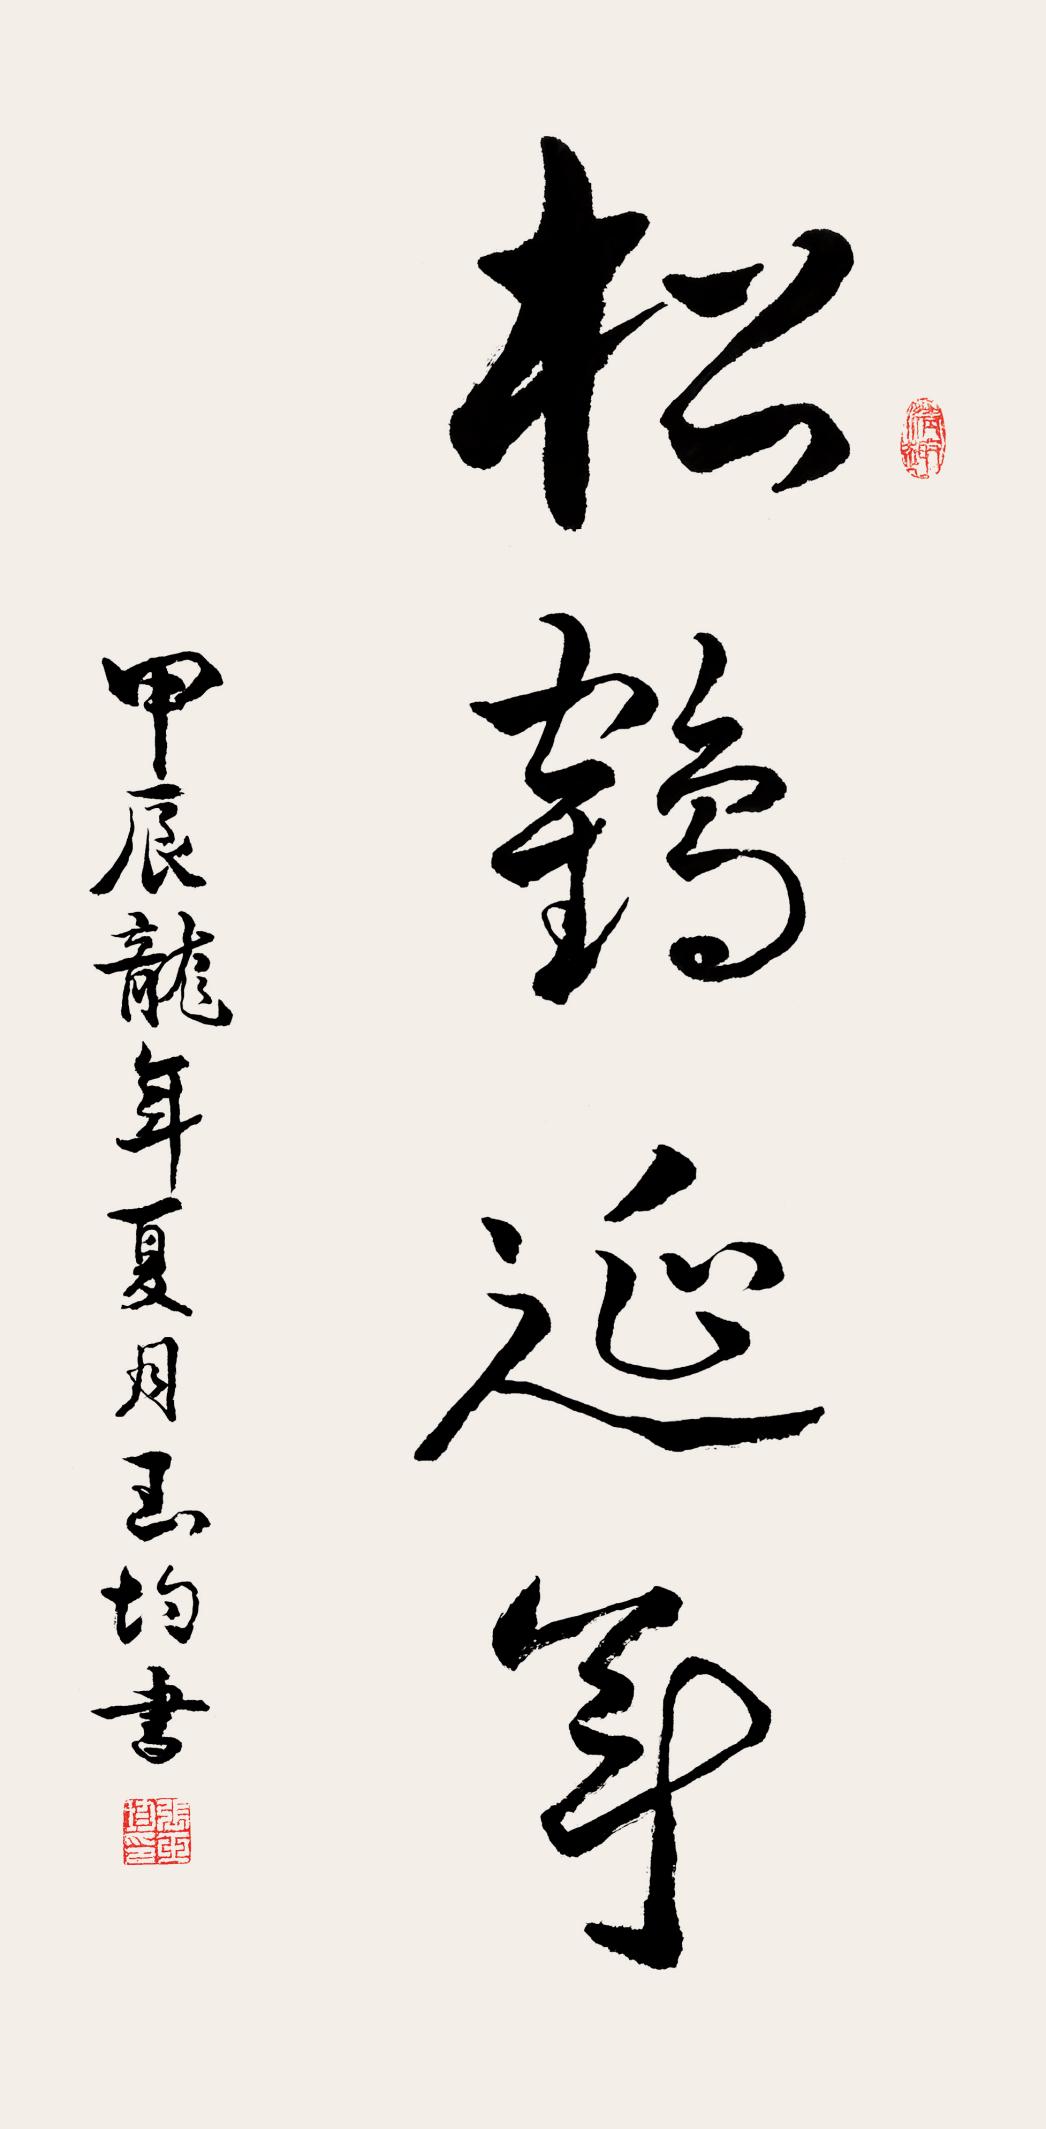 松鹤延年
甲辰龍年夏月玉均書